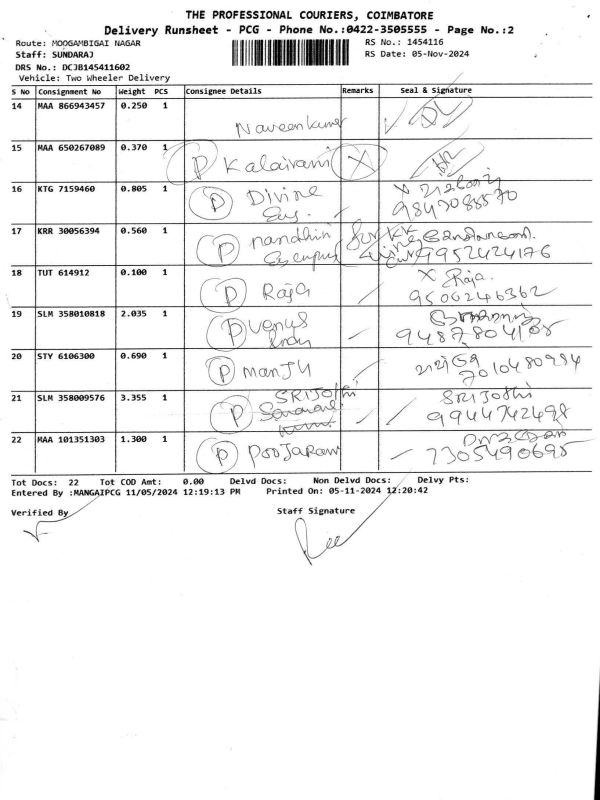 THE PROFESSIONAL COURIERS, COIMBATORE
Delivery Runsheet - PCG - Phone No.:0422-3505555 - Page No.:2
Route: MOOGAMBIGAI NAGAR RS No.: 1454116
Staff: SUNDARAJ RS Date: 05-Nov-2024
DRS No.: DCJB145411602
Vehicle: Two Wheeler Delivery
S No Consignment No Weight PCS Consignee Details Remarks Seal & Signature
14 MAA 866943457 0.250 1 Naveenkumar
15 MAA 650267089 0.370 1 P Kalairani X
16 KTG 7159460 0.805 1 P Divine X
9847088570
17 KRR 30056394 0.560 1 P nandhini
9952424176
18 TUT 614912 0.100 1 P Raja X Raja.
9500246362
19 SLM 358010818 2.035 1 P venus
20 STY 6106300 0.690 1 P manju
7010480994
21 SLM 358009576 3.355 1 P SRIJOTHI SRIJOTHI
9944742498
22 MAA 101351303 1.300 1 P PooJaRam
7305490695
Tot Docs: 22 Tot COD Amt: 0.00 Delvd Docs: Non Delvd Docs: Delvy Pts:
Entered By :MANGAIPCG 11/05/2024 12:19:13 PM Printed On: 05-11-2024 12:20:42
Verified By Staff Signature